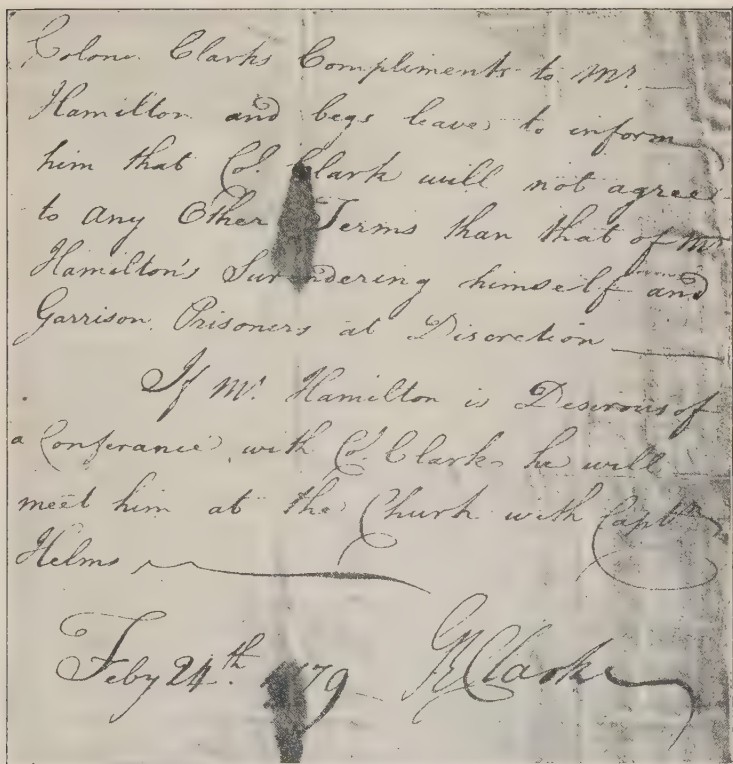 Colone. Clarks Compliments to Mr.
Hamilton and begs leave to inform
him that Col. Clark will not agree
to any Other Terms than that of Mr.
Hamilton's Surendering himself and
Garrison. Prisoners at Discretion
If Mr. Hamilton is Desirous of
a Conferance with Col. Clark he will
meet him at the Church with Captn
Helms
Feby 24th. 1779 GRClarke